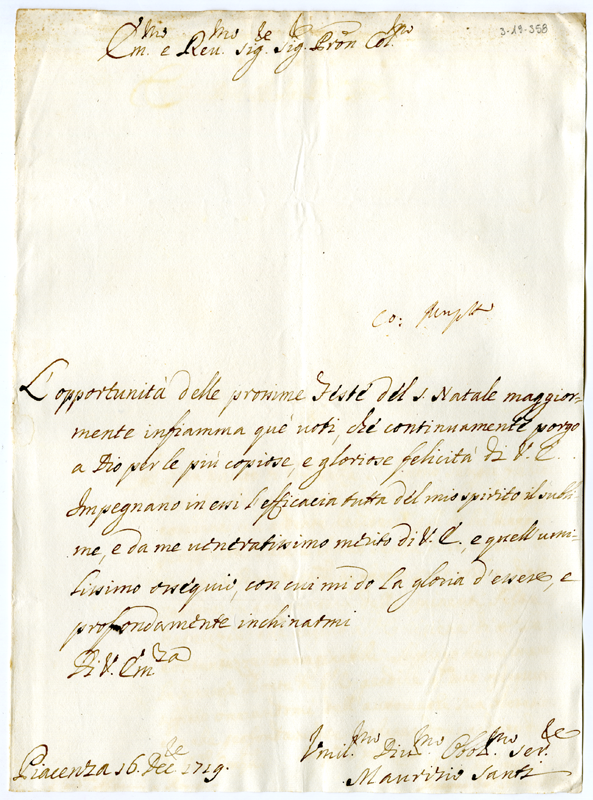 3-19-358
Em.mo e Reu.mo Sig.re Sig.r Pron Col.mo
Co:
L'opportunità delle prossime Feste del S. Natale maggior-
mente infiamma que' uoti, che continuamente porgo
a Dio per le più copiose, e gloriose felicità di V. E.
Impegnano in essi l'efficacia tutta del mio spirito il subli-
me, e da me ueneratissimo merito di V. E., e quell'umi-
lissimo ossequio, con cui mi do la gloria d'essere, e
profondamente inchinarmi
Di V. Em.za
Piacenza 16. Dec.re 1719.
Vmil.mo Diu.mo Obbl.mo Ser.re
Maurizio Santi